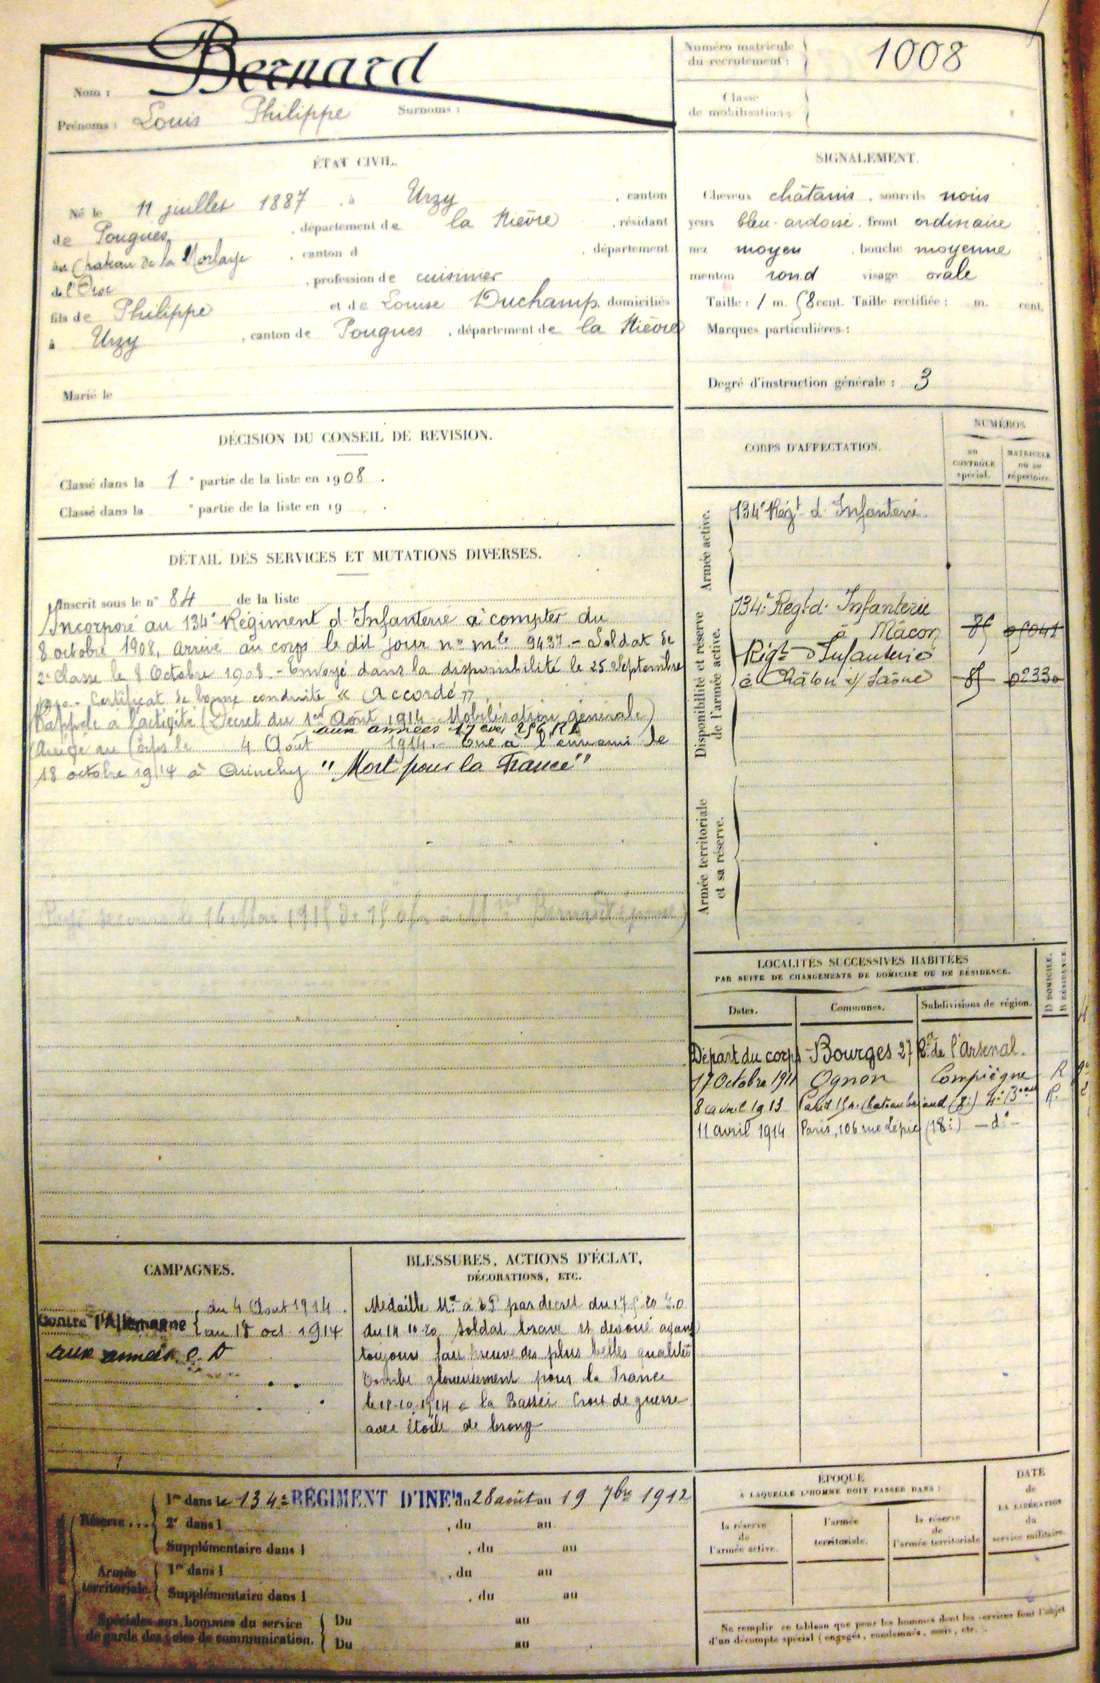 Nom : Bernard
Prénoms : Louis Philippe Surnoms :
Numéro matricule
du recrutement : 1008
Classe
de mobilisation :
ÉTAT CIVIL.
Né le 11 juillet 1887 , à Urzy , canton
de Pougues , département de la Nièvre , résidant
au Chateau de la Morlaye , canton d , département
de l'Oise , profession de cuisinier
fils de Philippe et de Louise Duchamp, domiciliés
à Urzy , canton de Pougues , département de la Nièvre
Marié le
SIGNALEMENT.
Cheveux châtains , sourcils noirs
yeux bleu-ardoisé , front ordinaire
nez moyen , bouche moyenne
menton rond visage ovale
Taille : 1 m. 58 cent. Taille rectifiée : m. cent.
Marques particulières :
Degré d'instruction générale : 3
DÉCISION DU CONSEIL DE REVISION.
Classé dans la 1e partie de la liste en 1908 .
Classé dans la e partie de la liste en 19 .
DÉTAIL DES SERVICES ET MUTATIONS DIVERSES.
Inscrit sous le n° 84 de la liste
Incorporé au 134e Régiment d'Infanterie à compter du
8 octobre 1908, arrivé au corps le dit jour n° mle 9437. - Soldat de
2e Classe le 8 Octobre 1908. - Envoyé dans la disponibilité le 25 Septembre
Certificat de bonne conduite "Accordé"
Rappelé à l'activité (Décret du 1er Août 1914 Mobilisation générale)
aux armées
Arrivé au Corps le 4 Août 1914. - Tué à l'ennemi le
18 octobre 1914 à Cuinchy "Mort pour la France"
secours le 16 Mai 1915 Bernard
CORPS D'AFFECTATION.
NUMÉROS
au
CONTRÔLE
spécial.
MATRICULE
ou au
répertoire.
Armée active.
134e Régt d'Infanterie.
Disponibilité et réserve
de l'armée active.
134e Régt d'Infanterie
à Mâcon 85 05041
Régt d'Infanterie
à Châlon s/ Saône 85 02330
Armée territoriale
et sa réserve.
LOCALITÉS SUCCESSIVES HABITÉES
PAR SUITE DE CHANGEMENTS DE DOMICILE OU DE RÉSIDENCE.
Dates. Communes. Subdivisions de région. D DOMICILE. R RÉSIDENCE.
Départ du corps Bourges 27 de l'Arsenal.
17 Octobre 1911 Ognon Compiègne R
8 avril 1913 Paris 15 r. Chateaubriand (8e) R
11 avril 1914 Paris, 106 rue Lepic (18e) - d° -
CAMPAGNES.
Contre l'Allemagne { du 4 Août 1914.
au 18 oct. 1914
aux armées
BLESSURES, ACTIONS D'ÉCLAT,
DÉCORATIONS, ETC.
Médaille Mre à T.P. par decret du J.O
du 14.10.20 Soldat brave et devoué ayant
toujours fait preuve des plus belles qualités
Tombé glorieusement pour la France
le 18-10-1914 à la Bassée Croix de guerre
avec étoile de bronze
Réserve... 1re dans le 134e RÉGIMENT D'INFie du 28 août au 19 7bre 1912
2e dans l , du au
Supplémentaire dans l , du au
Armée
territoriale. 1re dans l , du au
Supplémentaire dans l , du au
Spéciales aux hommes du service
de garde des voies de communication. Du au
Du au
ÉPOQUE
À LAQUELLE L'HOMME DOIT PASSER DANS :
la réserve
de
l'armée active.
l'armée
territoriale.
la réserve
de
l'armée territoriale
DATE
de
LA LIBÉRATION
du
service militaire.
Ne remplir ce tableau que pour les hommes dont les services font l'objet
d'un décompte spécial (engagés, condamnés, omis, etc.).